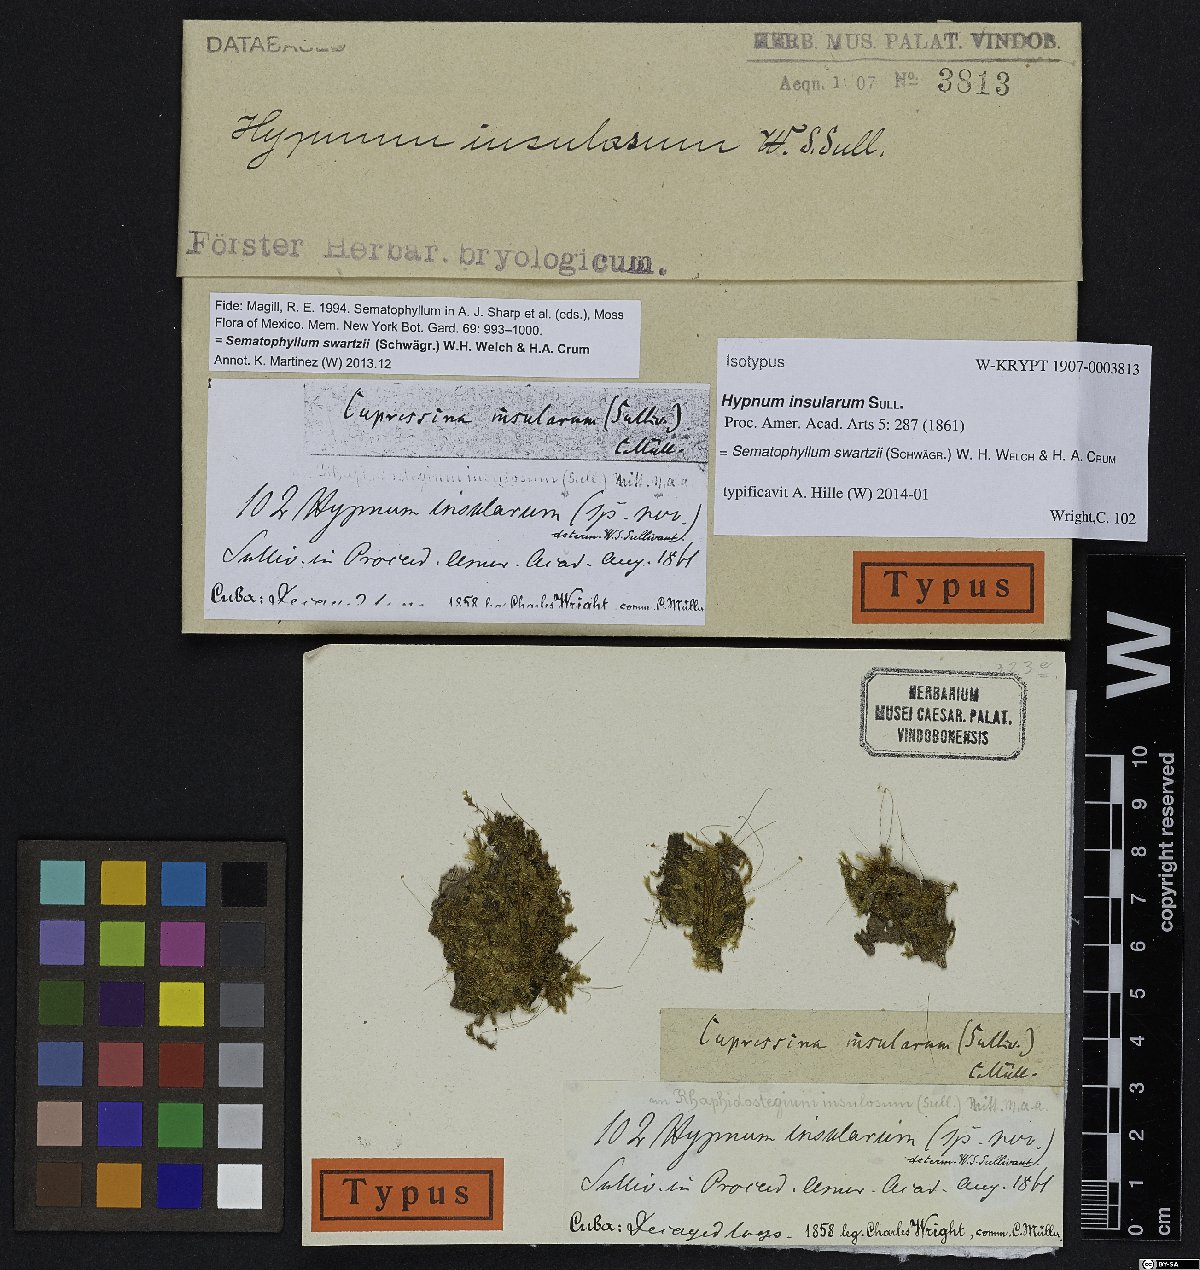 DATABASED
HERB. MUS. PALAT. VINDOB.
Acqn. 1907 No. 3813
Hypnum insulosum W. S. Sull.
Förster Herbar. bryologicum.
Fide: Magill, R. E. 1994. Sematophyllum in A. J. Sharp et al. (eds.), Moss
Flora of Mexico. Mem. New York Bot. Gard. 69: 993–1000.
= Sematophyllum swartzii (Schwägr.) W.H. Welch & H.A. Crum
Annot. K. Martinez (W) 2013.12
Isotypus W-KRYPT 1907-0003813
Hypnum insularum SULL.
Proc. Amer. Acad. Arts 5: 287 (1861)
= Sematophyllum swartzii (SCHWÄGR.) W. H. WELCH & H. A. CRUM
typificavit A. Hille (W) 2014-01
Wright,C. 102
Cupressina insularum (Sulliv.)
C. Müll.
insulosum (Sull.) Mitt. n.a.a.
102 Hypnum insularum (sp. nov.)
determ. W. S. Sullivant.
Sulliv. in Proceed. Amer. Acad. Aug. 1861
Cuba: 1858 leg. Charles Wright comm. C. Müller
Typus
HERBARIUM
MUSEI CAESAR. PALAT.
VINDOBONENSIS
Cupressina insularum (Sulliv.)
C. Müll.
Rhaphidostegium insulosum (Sull.) Mitt. n.a.a.
102 Hypnum insularum (sp. nov.)
determ. W. S. Sullivant.
Sulliv. in Proceed. Amer. Acad. Aug. 1861
Cuba: Decayed logs. 1858 leg. Charles Wright, comm. C. Müller
Typus
W
10
9
8
7
6
5
4
3
2
1
0
cm
copyright reserved
cc BY-SA